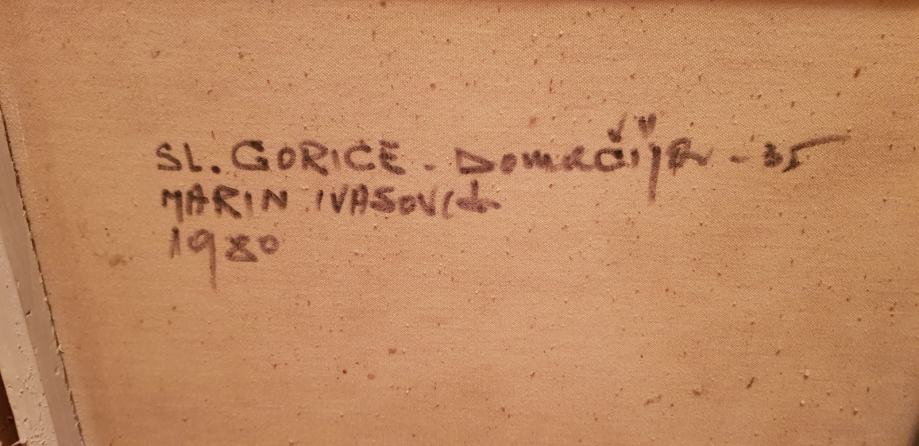 SL. GORICE - Domačija - 35
MARIN IVASOVICH
1980